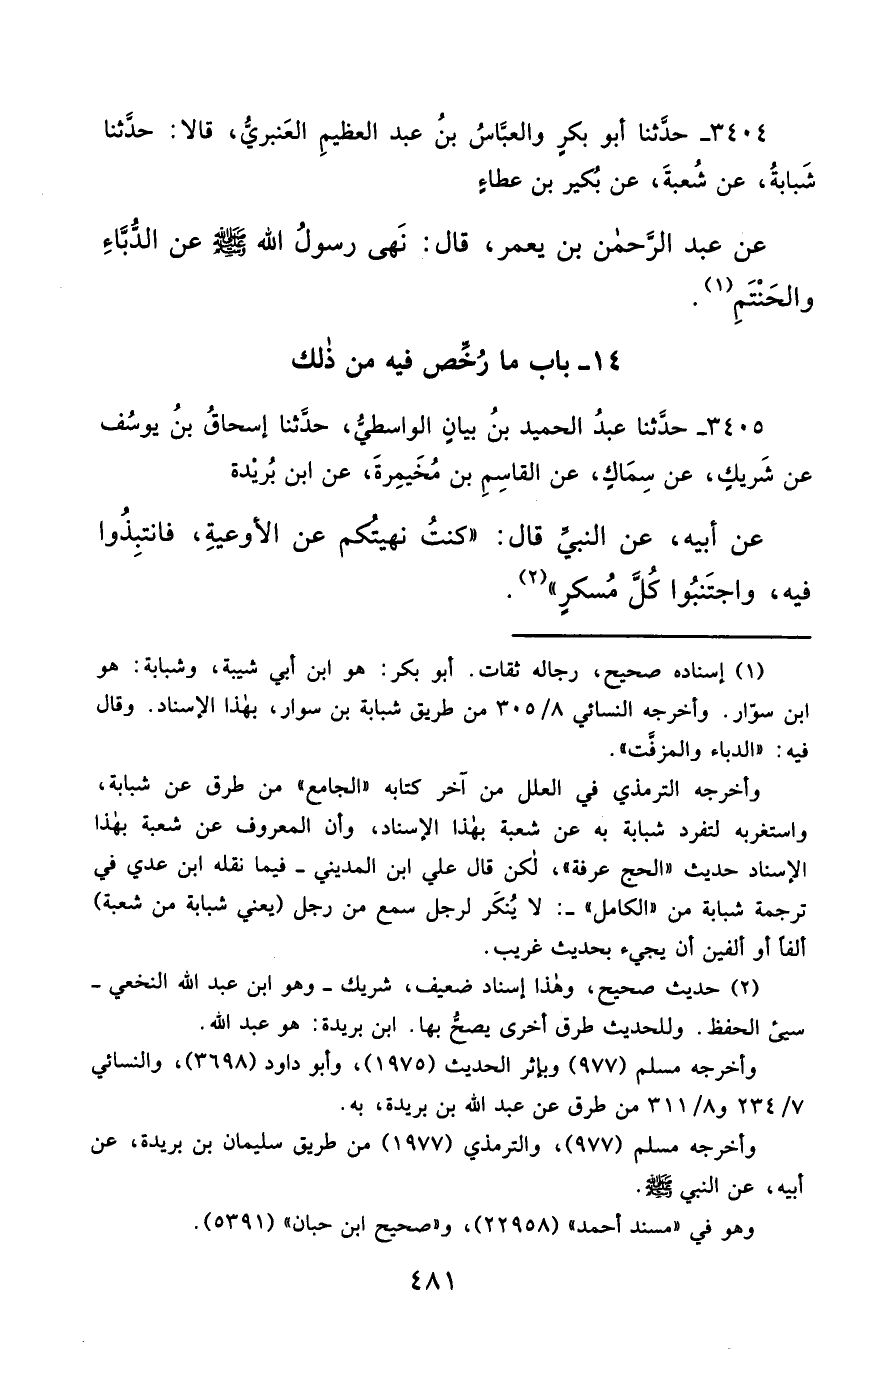 ٣٤٠٤ـ حدَّثنا أبو بكرٍ والعبَّاسُ بنُ عبد العظيمِ العَنبريُّ، قالا: حدَّثنا
شَبابةُ، عن شُعبةَ، عن بُكير بن عطاءٍ
عن عبد الرَّحمٰن بن يعمر، قال: نَهى رسولُ الله ﷺ عن الدُّبَّاءِ
والحَنْتَمِ(١).
١٤ـ باب ما رُخِّص فيه من ذٰلك
٣٤٠٥ـ حدَّثنا عبدُ الحميد بنُ بيانٍ الواسطيُّ، حدَّثنا إسحاقُ بنُ يوسُف
عن شَريكٍ، عن سِمَاكٍ، عن القاسِمِ بن مُخَيمِرةَ، عن ابن بُريْدة
عن أبيه، عن النبيِّ قال: «كنتُ نهيتُكم عن الأوعيةِ، فانتبِذُوا
فيه، واجتَنبُوا كُلَّ مُسكرٍ»(٢).
(١) إسناده صحيح، رجاله ثقات. أبو بكر: هو ابن أبي شيبة، وشبابة: هو
ابن سوّار. وأخرجه النسائي ٨/ ٣٠٥ من طريق شبابة بن سوار، بهٰذا الإسناد. وقال
فيه: «الدباء والمزفَّت».
وأخرجه الترمذي في العلل من آخر كتابه «الجامع» من طرق عن شبابة،
واستغربه لتفرد شبابة به عن شعبة بهٰذا الإسناد، وأن المعروف عن شعبة بهٰذا
الإسناد حديث «الحج عرفة»، لٰكن قال علي ابن المديني ـ فيما نقله ابن عدي في
ترجمة شبابة من «الكامل» ـ: لا يُنكَر لرجل سمع من رجل (يعني شبابة من شعبة)
ألفاً أو ألفين أن يجيء بحديث غريب.
(٢) حديث صحيح، وهٰذا إسناد ضعيف، شريك ـ وهو ابن عبد الله النخعي ـ
سيئ الحفظ. وللحديث طرق أخرى يصحُّ بها. ابن بريدة: هو عبد الله.
وأخرجه مسلم (٩٧٧) وبإثر الحديث (١٩٧٥)، وأبو داود (٣٦٩٨)، والنسائي
٧/ ٢٣٤ و٨/ ٣١١ من طرق عن عبد الله بن بريدة، به.
وأخرجه مسلم (٩٧٧)، والترمذي (١٩٧٧) من طريق سليمان بن بريدة، عن
أبيه، عن النبي ﷺ.
وهو في «مسند أحمد» (٢٢٩٥٨)، و«صحيح ابن حبان» (٥٣٩١).
٤٨١